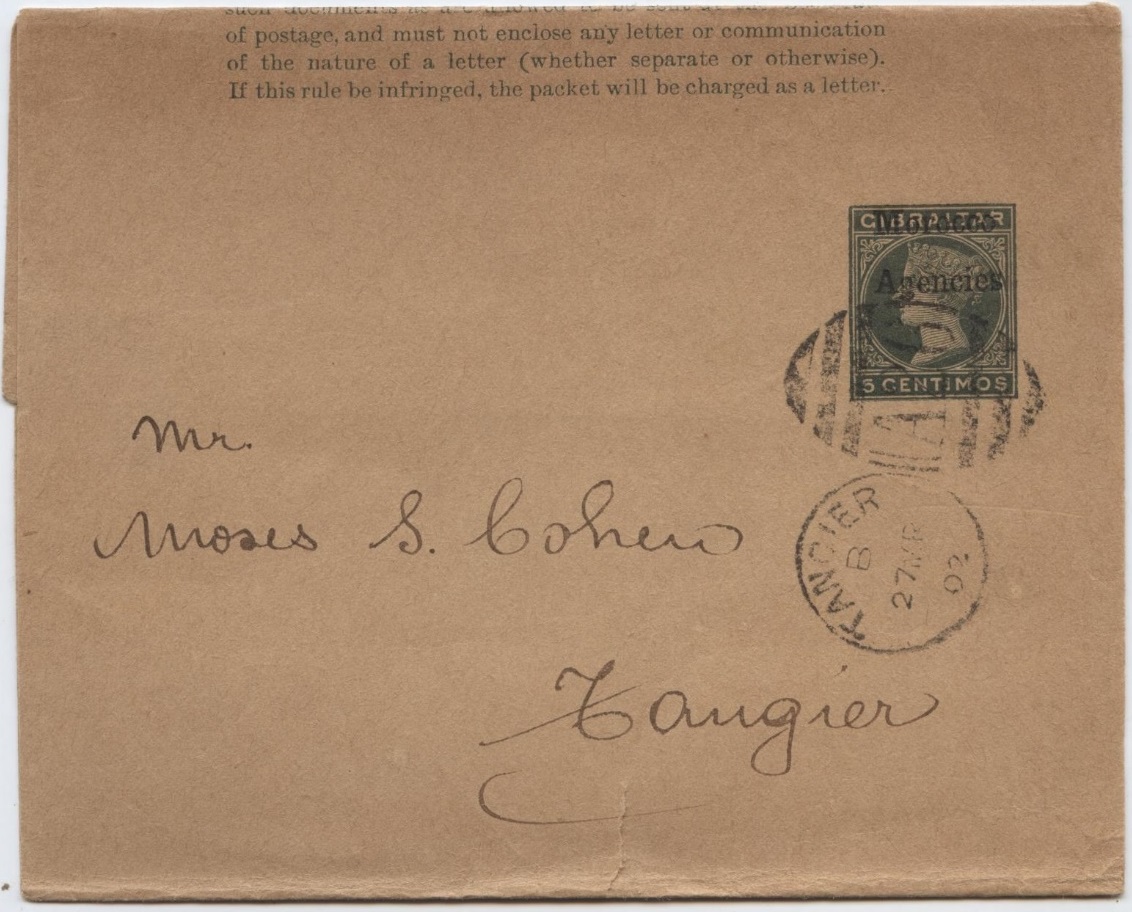 of postage, and must not enclose any letter or communication
of the nature of a letter (whether separate or otherwise).
If this rule be infringed, the packet will be charged as a letter.
GIBRALTAR
Morocco
Agencies
5 CENTIMOS
A
TANGIER
B
27
Mr.
Moses S. Cohen
Tangier